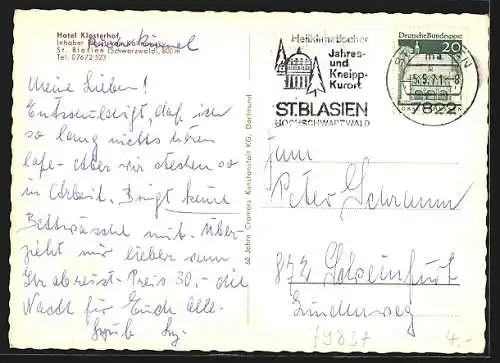 Hotel Klosterhof,
Inhaber
St. Blasien (Schwarzwald), 800 m
Tel. 07672/523
Meine Lieben!
Entschuldigt, daß ich
so lang nichts hören
lasse. Aber wir stecken so
in Arbeit. Bringt keine
Bettwäsche mit. Über
zieht mir lieber wenn
Ihr abreist. Preis 30,- die
Nacht für Euch alle.
60 Jahre Cramers Kunstanstalt KG, Dortmund
Heilklimatischer
Jahres-
und
Kneipp-
Kurort
ST. BLASIEN
HOCHSCHWARZWALD
Deutsche Bundespost
20
7822
Peter Schramm
872 Schweinfurt
Lindenweg
f9837
4.-